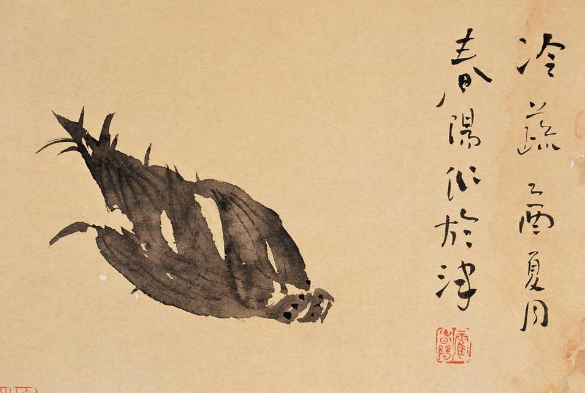 冷蔬乙酉夏月
春陽作於津